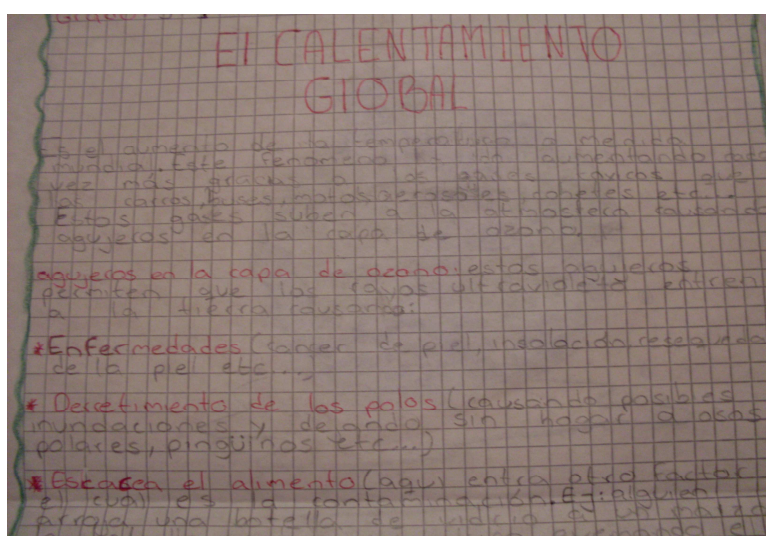 El CALENTAMIENTO
GlOBAL
Es el aumento de la temperatura a medida
mundial. Este fenomeno aumentando cada
vez más gracias a los gases toxicos que
los carros, buses, motos, aerosoles, cohetes etc...
Estos gases suben a la atmosfera causando
agujeros en la capa de ozono.
agujeros en la capa de ozono: estos agujeros
permiten que los rayos ultravioleta entren
a la tierra causando:
*Enfermedades (cancer de piel, insolación resequedad
de la piel etc...)
* Derretimiento de los polos (causando posibles
inundaciones y dejando sin hogar a osos
polares, pinguinos etc...)
*Escasea el alimento (aqui entra otro factor
el cual es la contaminación. Ej: alguien
arroja una botella de vidrio a un
el